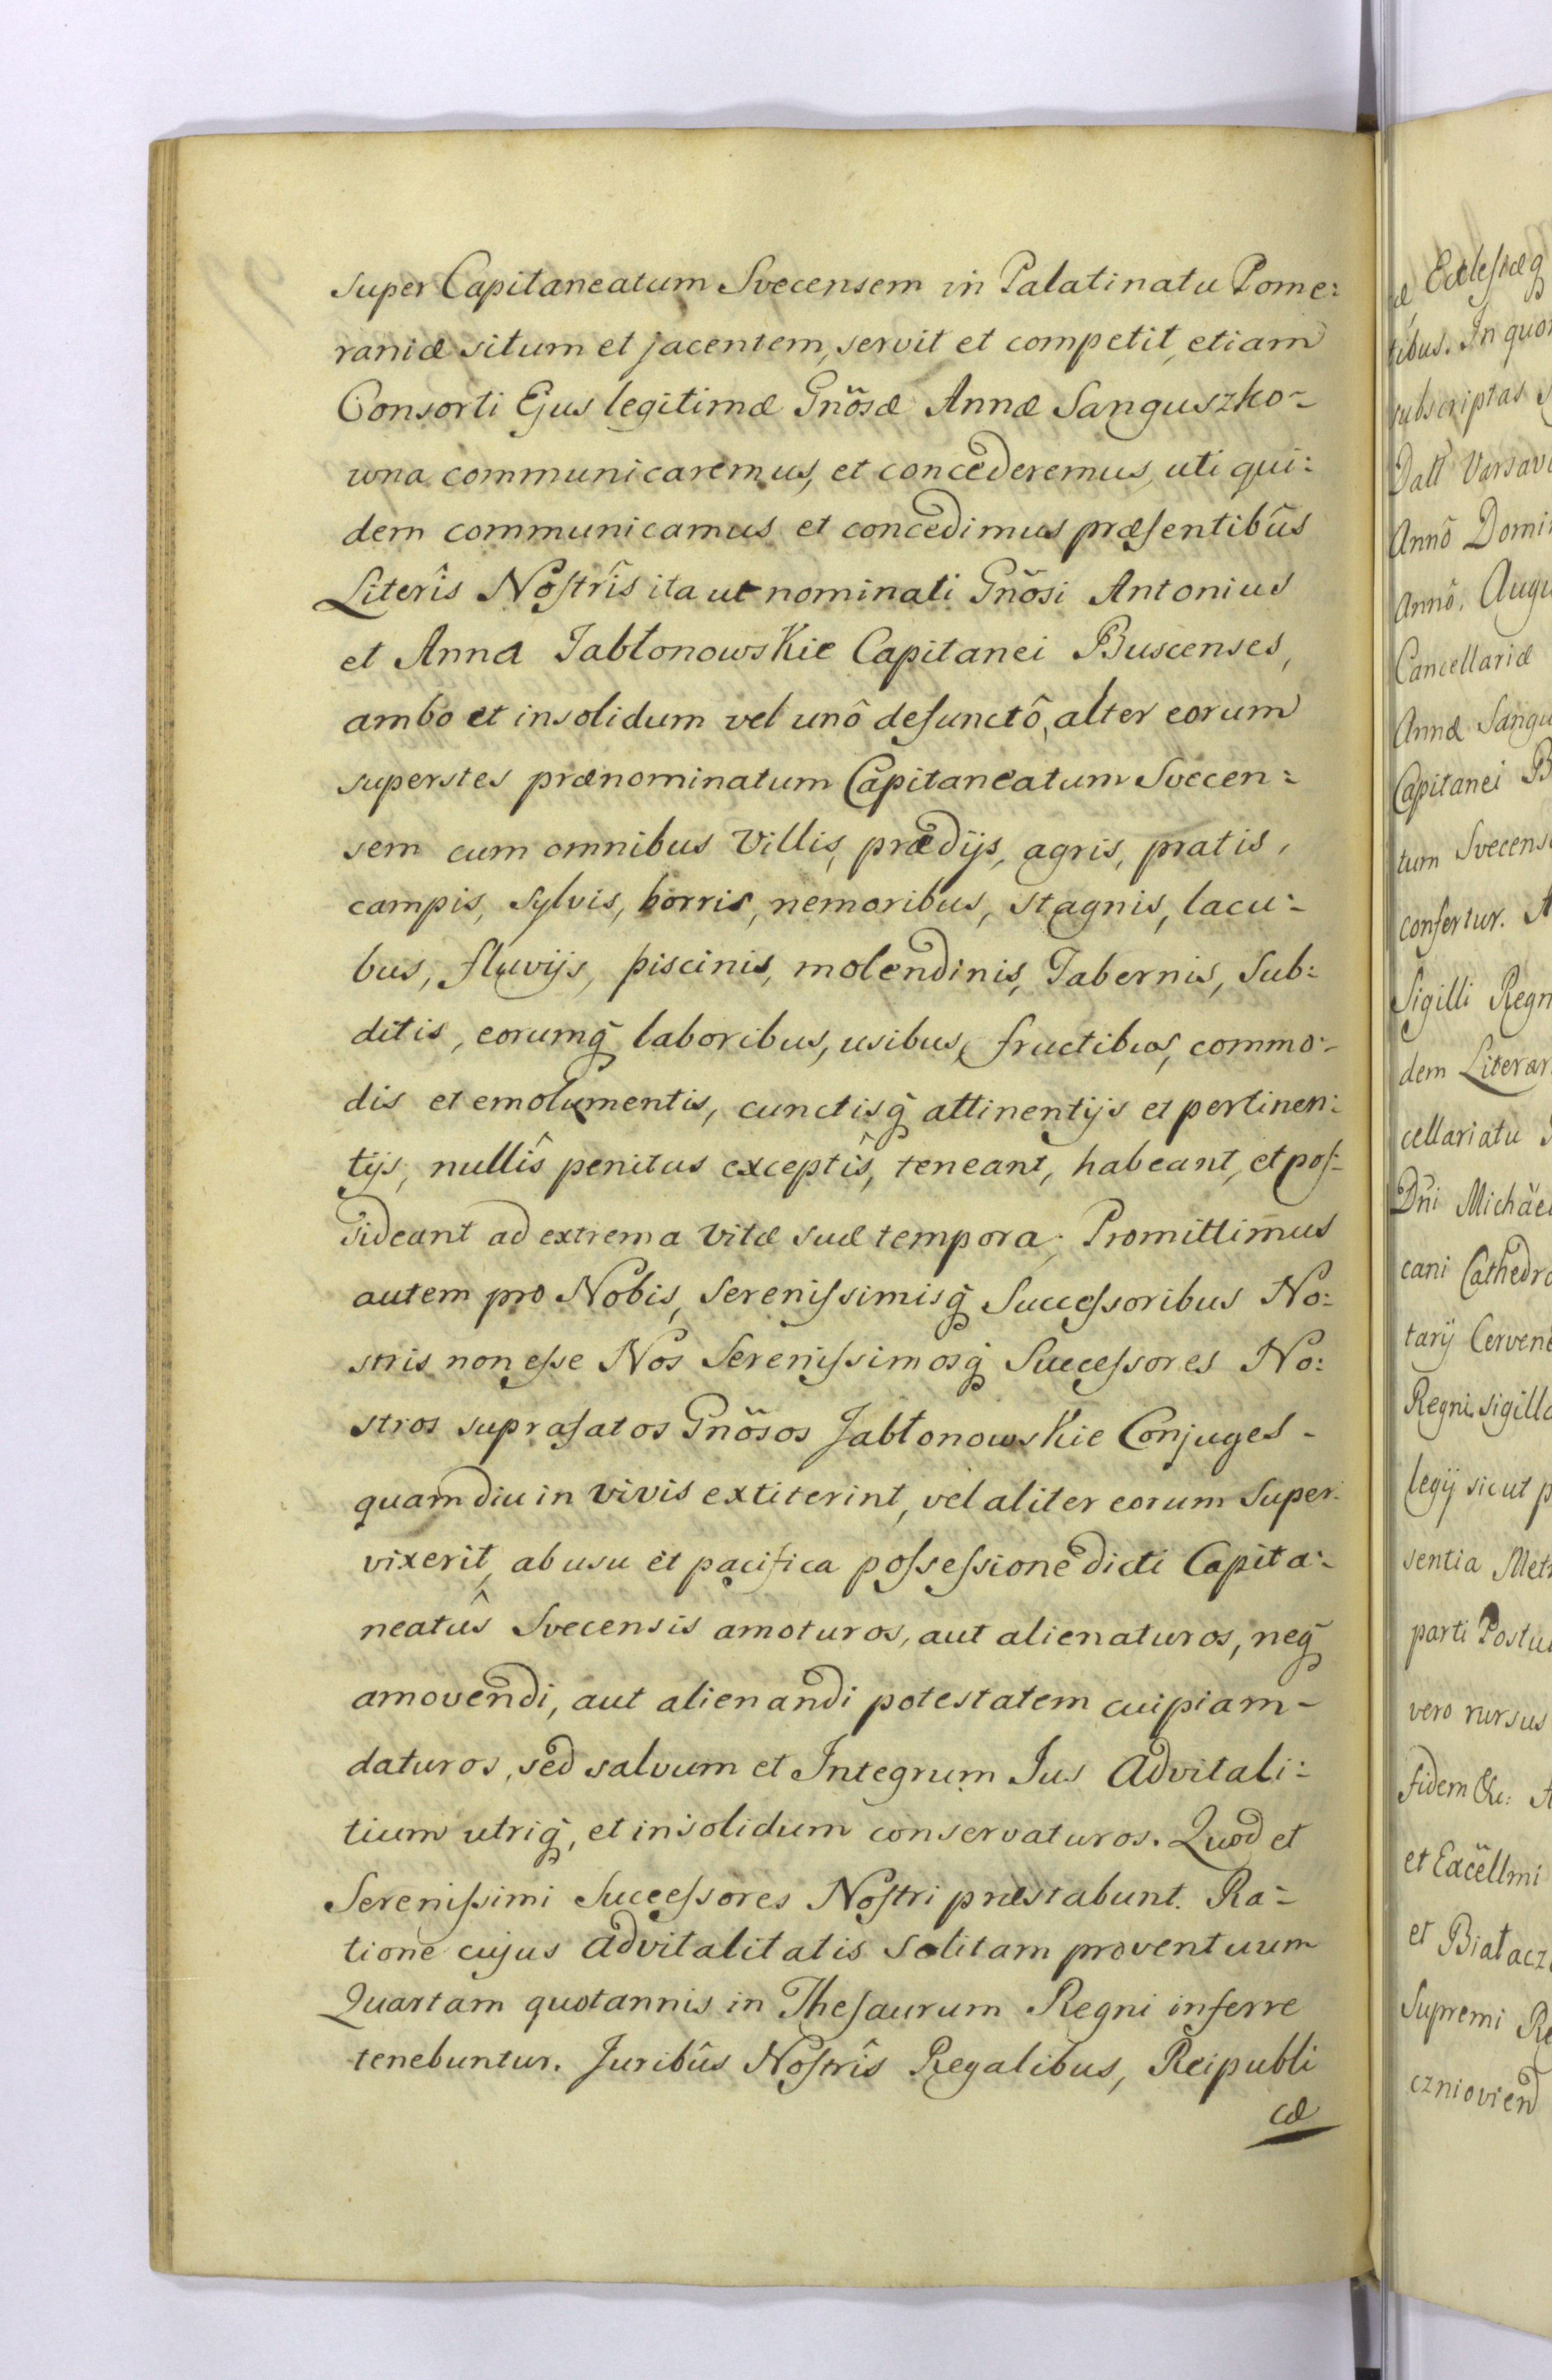 super Capitaneatum Svecensem in Palatinatu Pome:
raniæ situm et jacentem, servit et competit, etiam
Consorti Ejus legitimæ Gnõsæ Annæ Sanguszko-
wna communicaremus, et concederemus, uti qui:
dem communicamus et concedimus præsentibûs
Literîs Nostrîs ita ut nominati Gnõsi Antonius
et Anna Jabłonowskie Capitanei Buscenses,
ambo et insolidum vel unô defunctô, alter eorum
superstes prænominatum Capitaneatum Svecen:
sem cum omnibus Villis, prædijs, agris, pratis,
campis, sylvis, borris, nemoribus, stagnis, lacu:
bus, fluvijs, piscinis, molendinis, Tabernis, Sub:
ditis, eorumq̃ laboribus, usibus, fructibus, commo:
dis et emolumentis, cunctisq̃ attinentijs et pertinen:
tijs, nullîs penitus exceptîs, teneant, habeant, et pos:
sideant ad extrema Vitæ suæ tempora. Promittimus
autem pro Nobis, Serenissimisq̃ Successoribus No:
stris non esse Nos Serenissimosq̃ Successores No:
stros suprafatos Gnõsos Jabłonowskie Conjuges -
quamdiu in vivis extiterint, vel aliter eorum Super:
vixerit, ab usu et pacifica possessione dicti Capita:
neatûs Svecensis amoturos, aut alienaturos, neq̃
amovendi, aut alienandi potestatem cuipiam -
daturos, sed salvum et Integrum Jus Advitali:
tium utriq̃, et insolidum conservaturos. Quod et
Serenissimi Successores Nostri præstabunt. Ra-
tione cujus advitalitatis solitam proventuum
Quartam quotannis in Thesaurum Regni inferre
tenebuntur. Juribûs Nostrîs Regalibus, Reipubli
cæ
æ, Ecclesiæq
tibus. In quor
subscriptas
Datt Varsavi
Annô Domin
Annô. Augu
Cancellariæ
Annæ Sangu
Capitanei B
tum Svecens
confertur. A
Sigilli Regn
dem Literar
cellariatu
Dñi Michäe
cani Cathedr
tarij Cerven
Regni sigill
legij sicut p
sentia Met
parti Postu
vero rursus
fidem &c: A
et Excëllmi
et Białacz
Supremi Re
czniovien